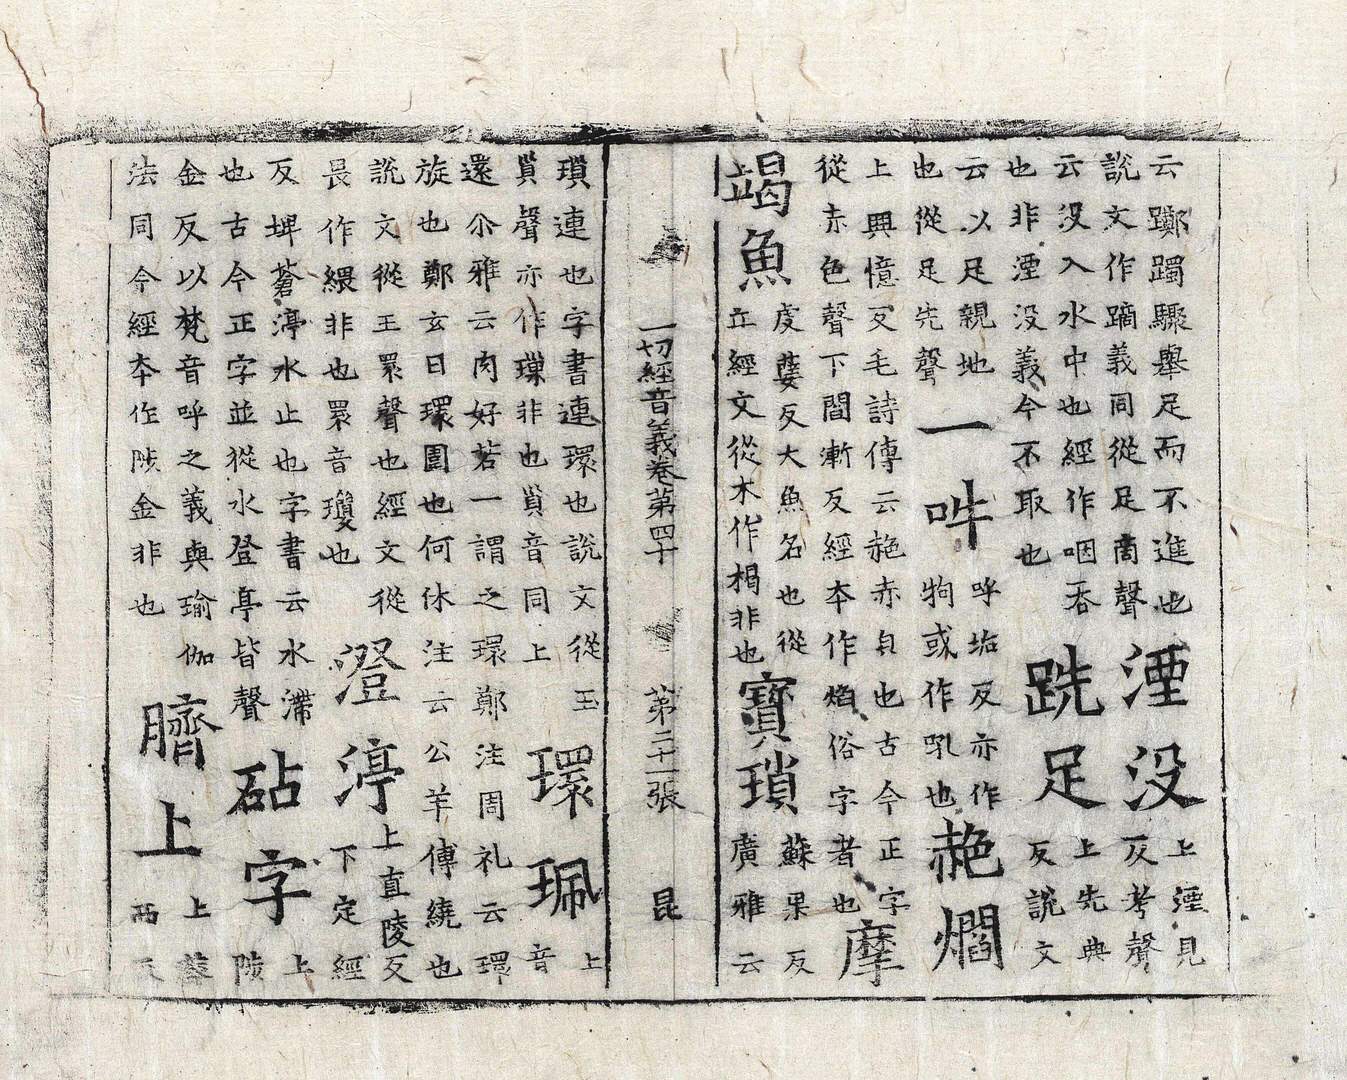 云躑躅驟舉足而不進也
說文作蹢義同從足啇聲
湮没
上湮見
反考聲
云没入水中也經作咽吞
也非湮没義今不取也
跣足
上先典
反說文
云以足親地
也從足先聲
一吽
呼垢反亦作
狗或作吼也
赩爓
上興憶反毛詩傳云赩赤皃也古今正字
從赤色聲下閻漸反經本作焰俗字者也
摩
竭魚
虔蘖反大魚名也從
立經文從木作楬非也
寶瑣
蘇果反
廣雅云
一切經音義卷第四十 第二十一張 昆
瑣連也字書連環也說文從玉
貟聲亦作璅非也貟音同上
環珮
上
音
還尒雅云肉好若一謂之環鄭注周礼云環
旋也鄭玄曰環圍也何休注云公羊傳繞也
說文從王睘聲也經文從
畏作緭非也睘音瓊也
澄渟
上直陵反
下定經
反埤蒼渟水止也字書云水滯
也古今正字並從水登亭皆聲
砧字
上
陟
金反以梵音呼之義與瑜伽
法同今經本作陟金非也
臍上
上
西